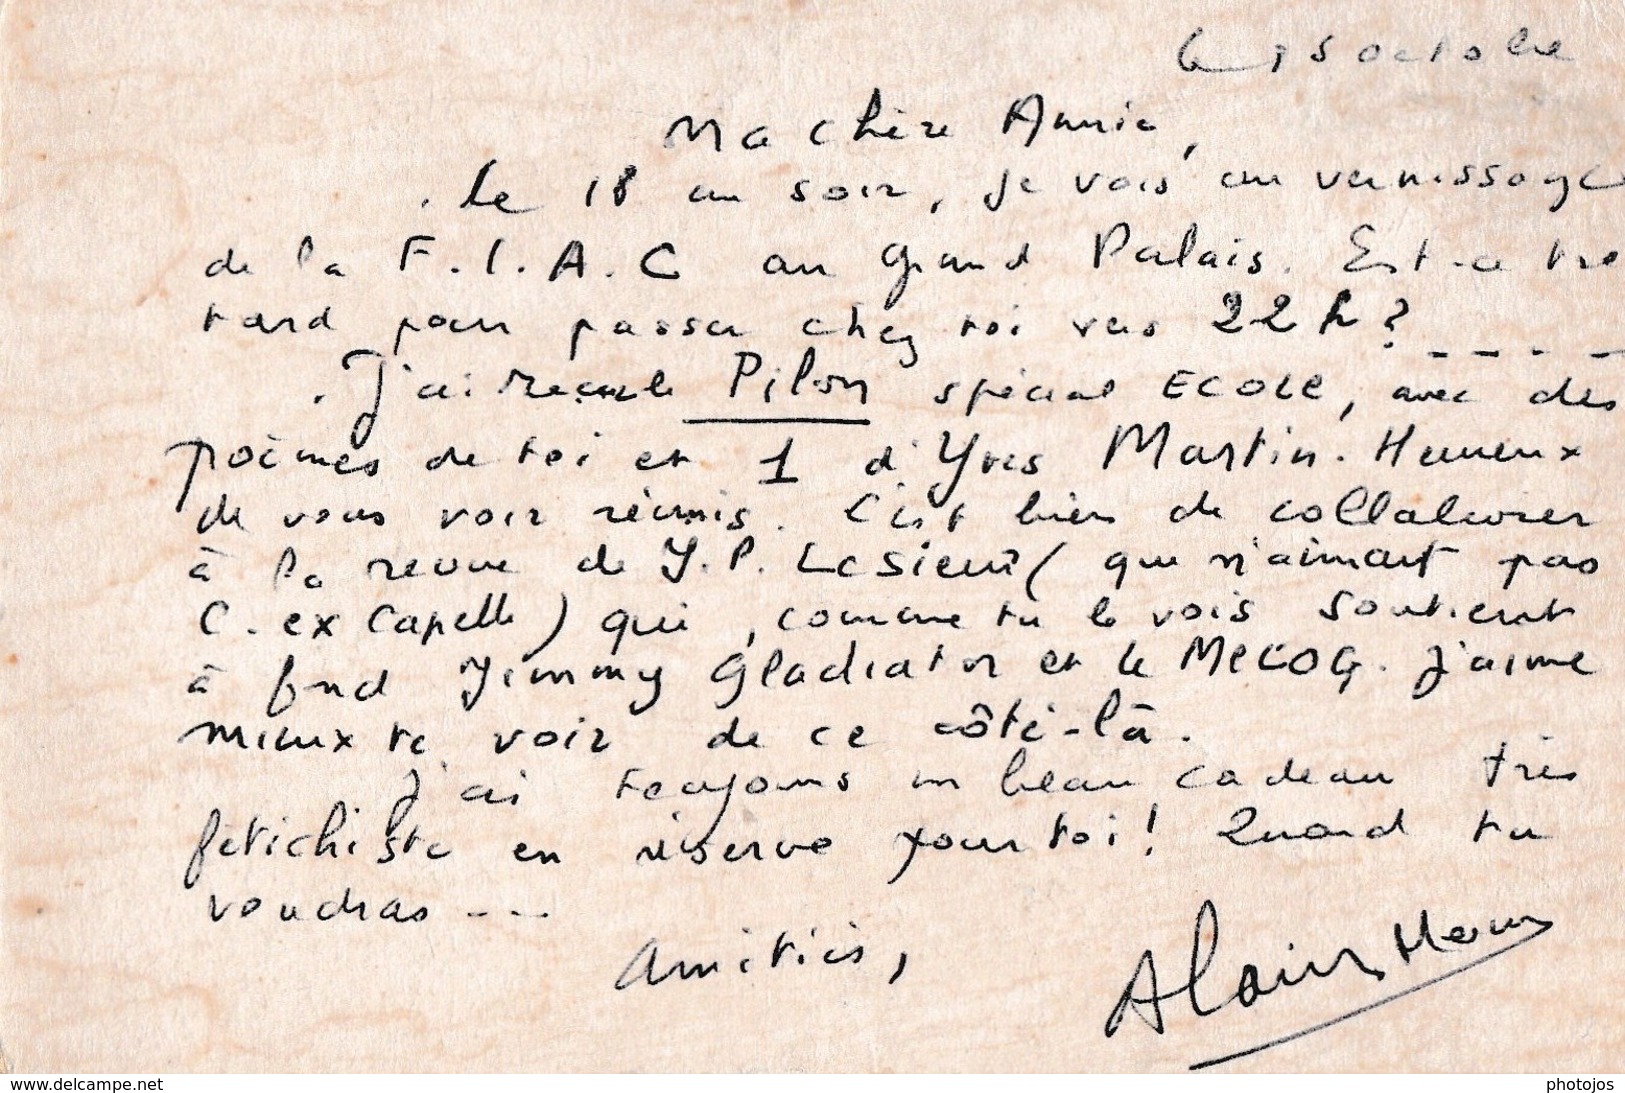 le 15 octobre
Ma chère Annie,
. Le 18 au soir, je vais au vernissage
de la F.I.A.C au Grand Palais. Est-ce trop
tard pour passer chez toi vers 22 h ? ----
. J'ai reçu le Pilon spécial ECOLE, avec des
poèmes de toi et 1 d'Yves Martin. Heureux
de vous voir réunis. C'est bien de collaborer
à la revue de J.P. Lesieur (que n'aimait pas
C. ex Capelle) qui, comme tu le vois soutient
à fond Jimmy Gladiator et le MELOG. J'aime
mieux te voir de ce côté-là.
J'ai toujours un beau cadeau très
fétichiste en réserve pour toi ! Quand tu
voudras ---
Amitiés,
Alain
www.delcampe.net
photojos